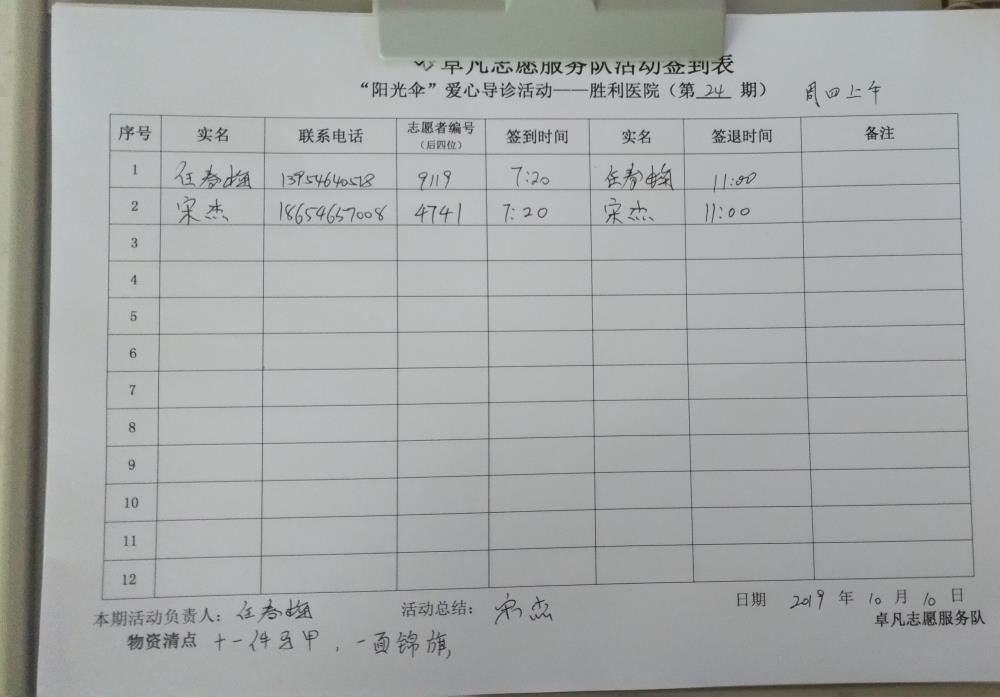 卓凡志愿服务队活动签到表
“阳光伞”爱心导诊活动——胜利医院（第 24 期） 周四上午
序号 实名 联系电话 志愿者编号（后四位） 签到时间 实名 签退时间 备注
1 任春梅 13954640518 9119 7:20 任春梅 11:00
2 宋杰 18654657008 4741 7:20 宋杰 11:00
3
4
5
6
7
8
9
10
11
12
本期活动负责人：任春梅 活动总结：宋杰 日期 2019 年 10 月 10 日
卓凡志愿服务队
物资清点 十一件马甲，一面锦旗，